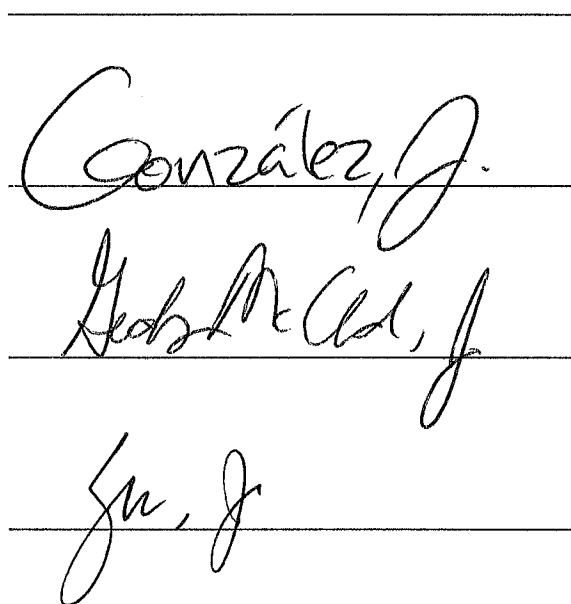 González, J.
Gordon McCloud, J
Yu, J